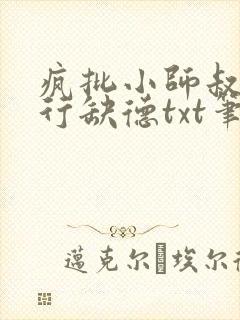 疯批小師叔
行缺德txt筆
邁克尔·埃尔德